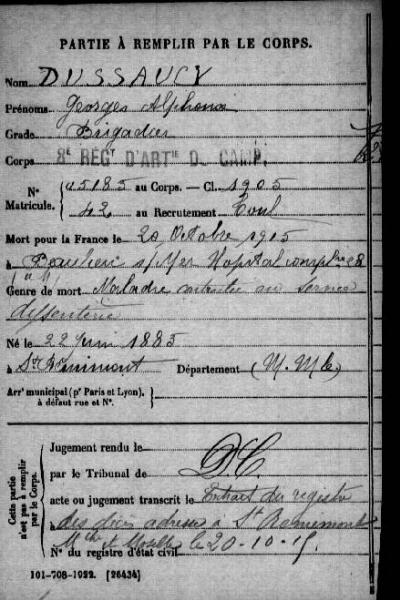 PARTIE À REMPLIR PAR LE CORPS.
Nom DUSSAUCY
Prénoms Georges Alphonse
Grade Brigadier
Corps 8E REGT D'ARTIE DE CAMP.
N° Matricule. 05185 au Corps. — Cl. 1905
42 au Recrutement Toul
Mort pour la France le 20 Octobre 1915
à s/Mer Hopital compre 28
Genre de mort Maladie contractée au service
dysenterie
Né le 22 Juin 1885
à St Remimont Département (M. Mlle)
Arrt municipal (pr Paris et Lyon),
à défaut rue et N°.
Cette partie n'est pas à remplir par le Corps.
Jugement rendu le
par le Tribunal de
acte ou jugement transcrit le Extrait du registre
des décès adressé à St Remimont
Mthe et Moselle le 20-10-15.
N° du registre d'état civil
101-708-1922. [26434]